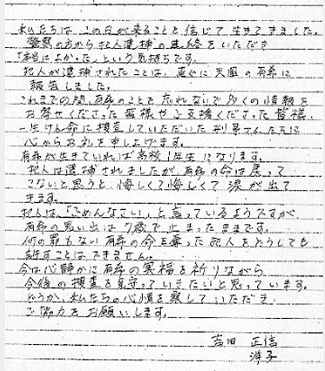 私たちは この日が来ることを信じて生きてきました。
警察の方から犯人逮捕の連絡をいただき
「本当によかった」という気持ちです。
犯人が逮捕されたことは、直ぐに天国の有希に
報告しました。
これまでの間、有希のことを忘れないで多くの情報を
お寄せくださった皆様やご支援くださった皆様、
一生けん命に捜査していただいた刑事さんたちに
心からお礼を申し上げます。
有希が生きていれば高校1年生になります。
犯人は逮捕されましたが、有希の命は戻って
こないと思うと、悔しくて悔しくて涙が出て
きます。
犯人は、「ごめんなさい」と言っているようですが、
有希の思い出は7歳で止まったままです。
何の罪もない有希の命を奪った犯人をどうしても
許すことはできません。
今は心静かに有希の冥福を祈りながら
今後の捜査を見守っていきたいと思っています。
どうか、私たちの心情を察していただき
ご協力をお願いします。
吉田 正信
洋子